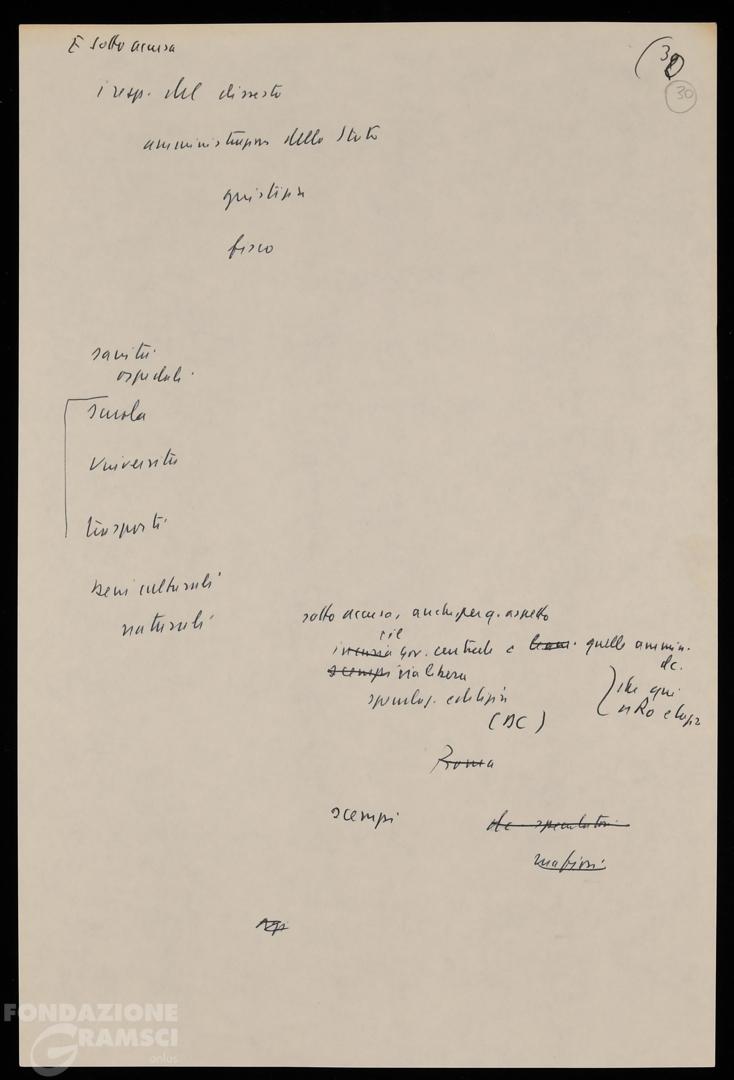 È sotto accusa
(30
30
i resp. del dissesto
amministrazion dello Stato
giustizia
fisco
sanità
ospedali
scuola
Università
trasporti
beni culturali
naturali
sotto accusa, anche per q. aspetto
sie
incuria gov. centrale e quelle ammin.
dc.
scempi via libera
speculaz. edilizia
che qui
(DC)
Roma
scempi
dc speculatori
mafiosi
FONDAZIONE
GRAMSCI
onlus